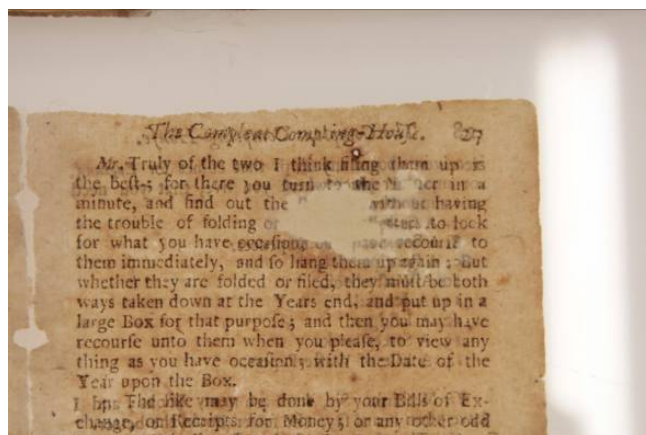 The Compleat Compting-House.
Mr. Truly of the two I think filing them up is
the best; for there you turn to the in a
minute, and find out the without having
the trouble of folding or to look
for what you have occasion recourse to
them immediately, and so hang them up again; But
whether they are folded or filed, they must be both
ways taken down at the Years end, and put up in a
large Box for that purpose; and then you may have
recourse unto them when you please, to view any
thing as you have occasion, with the Date of the
Year upon the Box.
The like may be done by your Bills of Ex-
change, or Receipts for Money; or any other odd